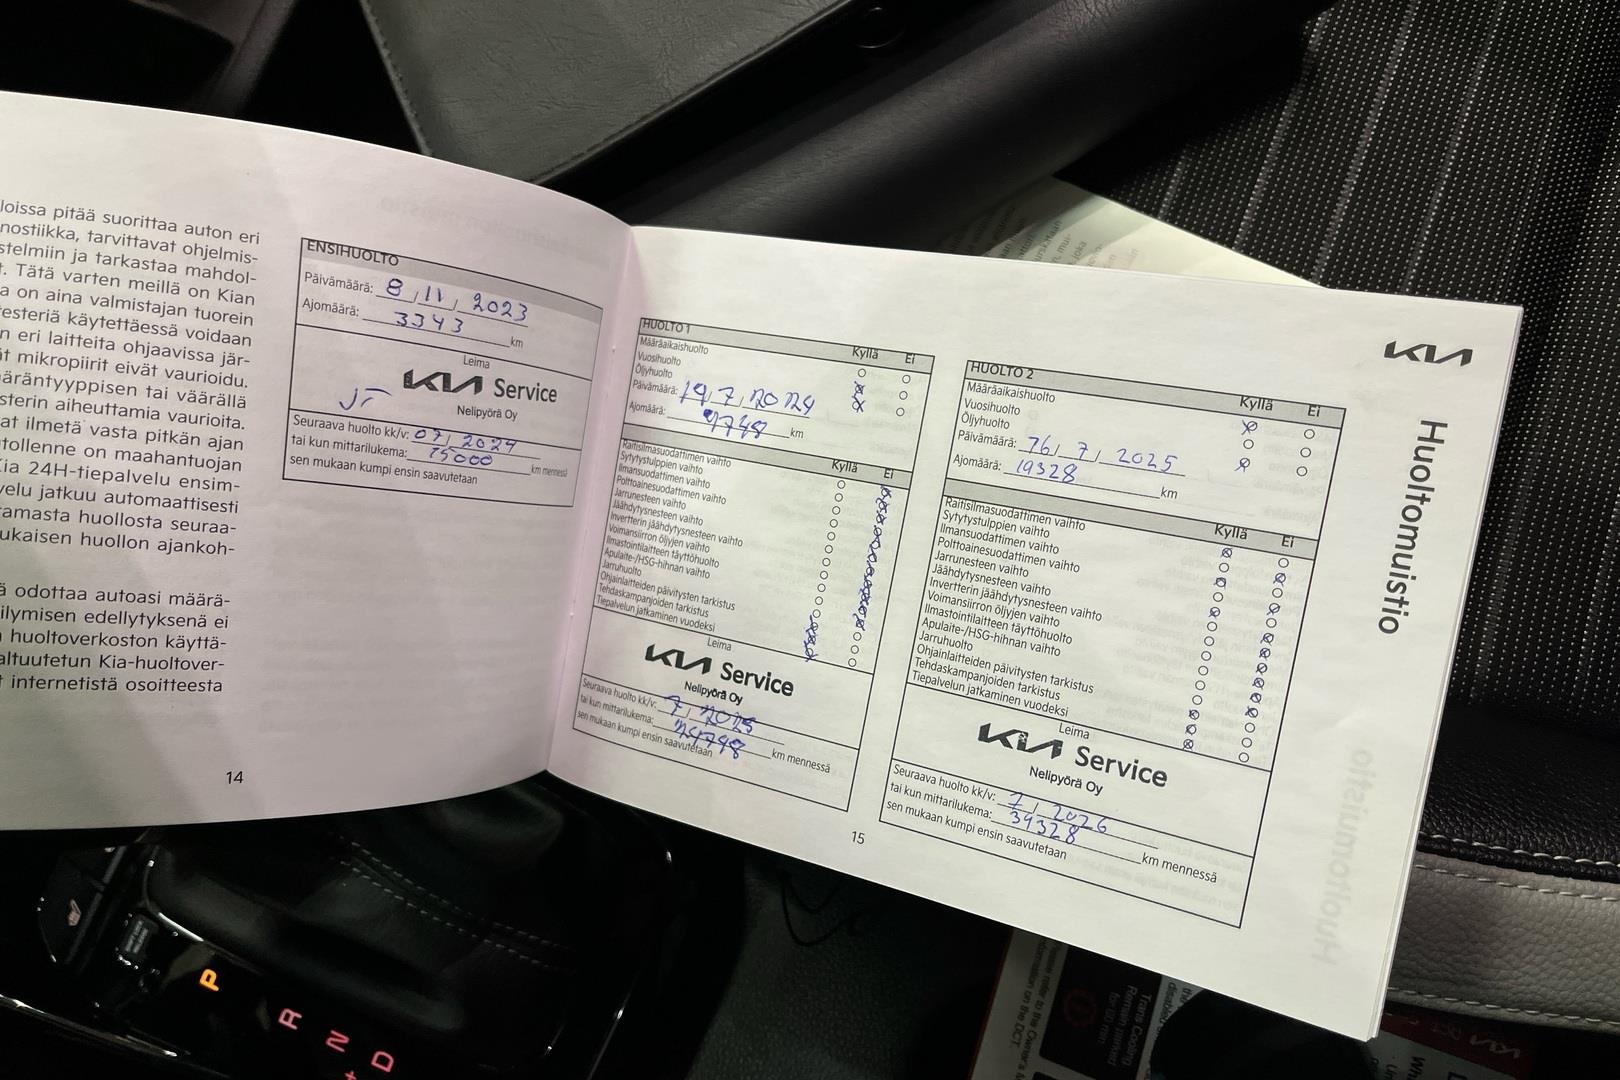 loissa pitää suorittaa auton eri
nostiikka, tarvittavat ohjelmis-
stelmiin ja tarkastaa mahdol-
t. Tätä varten meillä on Kian
a on aina valmistajan tuorein
esteriä käytettäessä voidaan
n eri laitteita ohjaavissa jär-
ät mikropiirit eivät vaurioidu.
ääräntyyppisen tai väärällä
sterin aiheuttamia vaurioita.
at ilmetä vasta pitkän ajan
tollenne on maahantuojan
Kia 24H-tiepalvelu ensim-
velu jatkuu automaattisesti
tamasta huollosta seuraa-
ukaisen huollon ajankoh-
ä odottaa autoasi määrä-
ilymisen edellytyksenä ei
n huoltoverkoston käyttä-
altuutetun Kia-huoltover-
t internetistä osoitteesta
14
ENSIHUOLTO
Päivämäärä: 8 / 11 / 2023
Ajomäärä: 3343 km
Leima
KIA Service
Nelipyörä Oy
Seuraava huolto kk/v: 07 / 2024
tai kun mittarilukema: 15000 km mennessä
sen mukaan kumpi ensin saavutetaan
HUOLTO 1
Kyllä Ei
Määräaikaishuolto
Vuosihuolto
Öljyhuolto
Päivämäärä: 19 / 7 / 2024
Ajomäärä: 9748 km
Kyllä Ei
Raitisilmasuodattimen vaihto
Sytytystulppien vaihto
Ilmansuodattimen vaihto
Polttoainesuodattimen vaihto
Jarrunesteen vaihto
Jäähdytysnesteen vaihto
Invertterin jäähdytysnesteen vaihto
Voimansiirron öljyjen vaihto
Ilmastointilaitteen täyttöhuolto
Apulaite-/HSG-hihnan vaihto
Jarruhuolto
Ohjainlaitteiden päivitysten tarkistus
Tehdaskampanjoiden tarkistus
Tiepalvelun jatkaminen vuodeksi
Leima
KIA Service
Nelipyörä Oy
Seuraava huolto kk/v: 7 / 2025
tai kun mittarilukema: 24748 km mennessä
sen mukaan kumpi ensin saavutetaan
15
HUOLTO 2
Kyllä Ei
Määräaikaishuolto
Vuosihuolto
Öljyhuolto
Päivämäärä: 16 / 7 / 2025
Ajomäärä: 19328 km
Kyllä Ei
Raitisilmasuodattimen vaihto
Sytytystulppien vaihto
Ilmansuodattimen vaihto
Polttoainesuodattimen vaihto
Jarrunesteen vaihto
Jäähdytysnesteen vaihto
Invertterin jäähdytysnesteen vaihto
Voimansiirron öljyjen vaihto
Ilmastointilaitteen täyttöhuolto
Apulaite-/HSG-hihnan vaihto
Jarruhuolto
Ohjainlaitteiden päivitysten tarkistus
Tehdaskampanjoiden tarkistus
Tiepalvelun jatkaminen vuodeksi
Leima
KIA Service
Nelipyörä Oy
Seuraava huolto kk/v: 7 / 2026
tai kun mittarilukema: 34328 km mennessä
sen mukaan kumpi ensin saavutetaan
KIA
Huoltomuistio
P
R
N
D
+
Trans Cooling
Remain parked
for 00 min